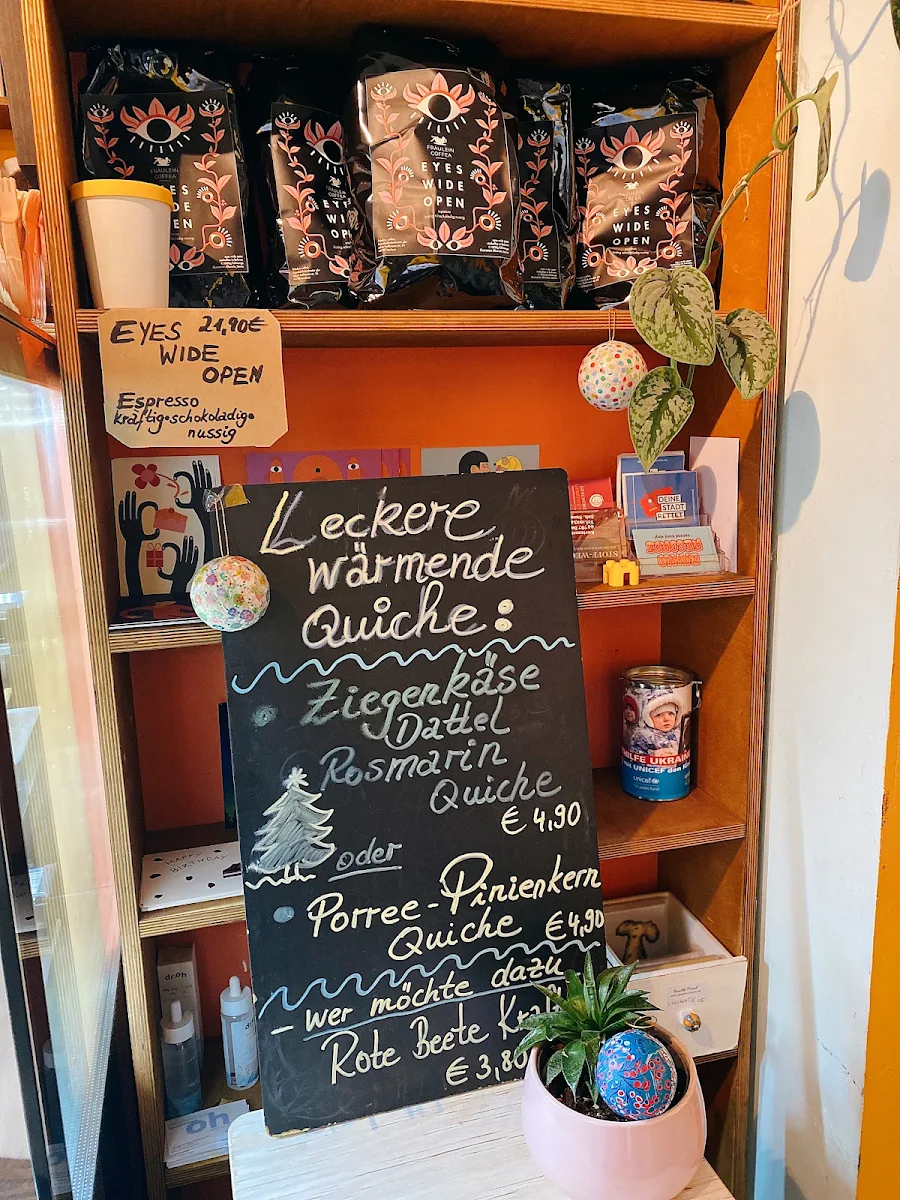 FRÄULEIN
COFFEA
EYES
WIDE
OPEN
FRÄULEIN
COFFEA
EYES
WIDE
OPEN
EYES
WIDE
OPEN
EYES 21,90€
WIDE
OPEN
Espresso
kräftig•schokoladig•
nussig
DEINE
STADT
RETTET
Leckere
wärmende
Quiche:
Ziegenkäse
Dattel
Rosmarin
Quiche
€ 4,90
oder
Porree-Pinienkern
Quiche €4,90
- wer möchte dazu
Rote Beete
€ 3,80
UKRAINE
unicef
HAPPY
BIRTHDAY
droh
oh